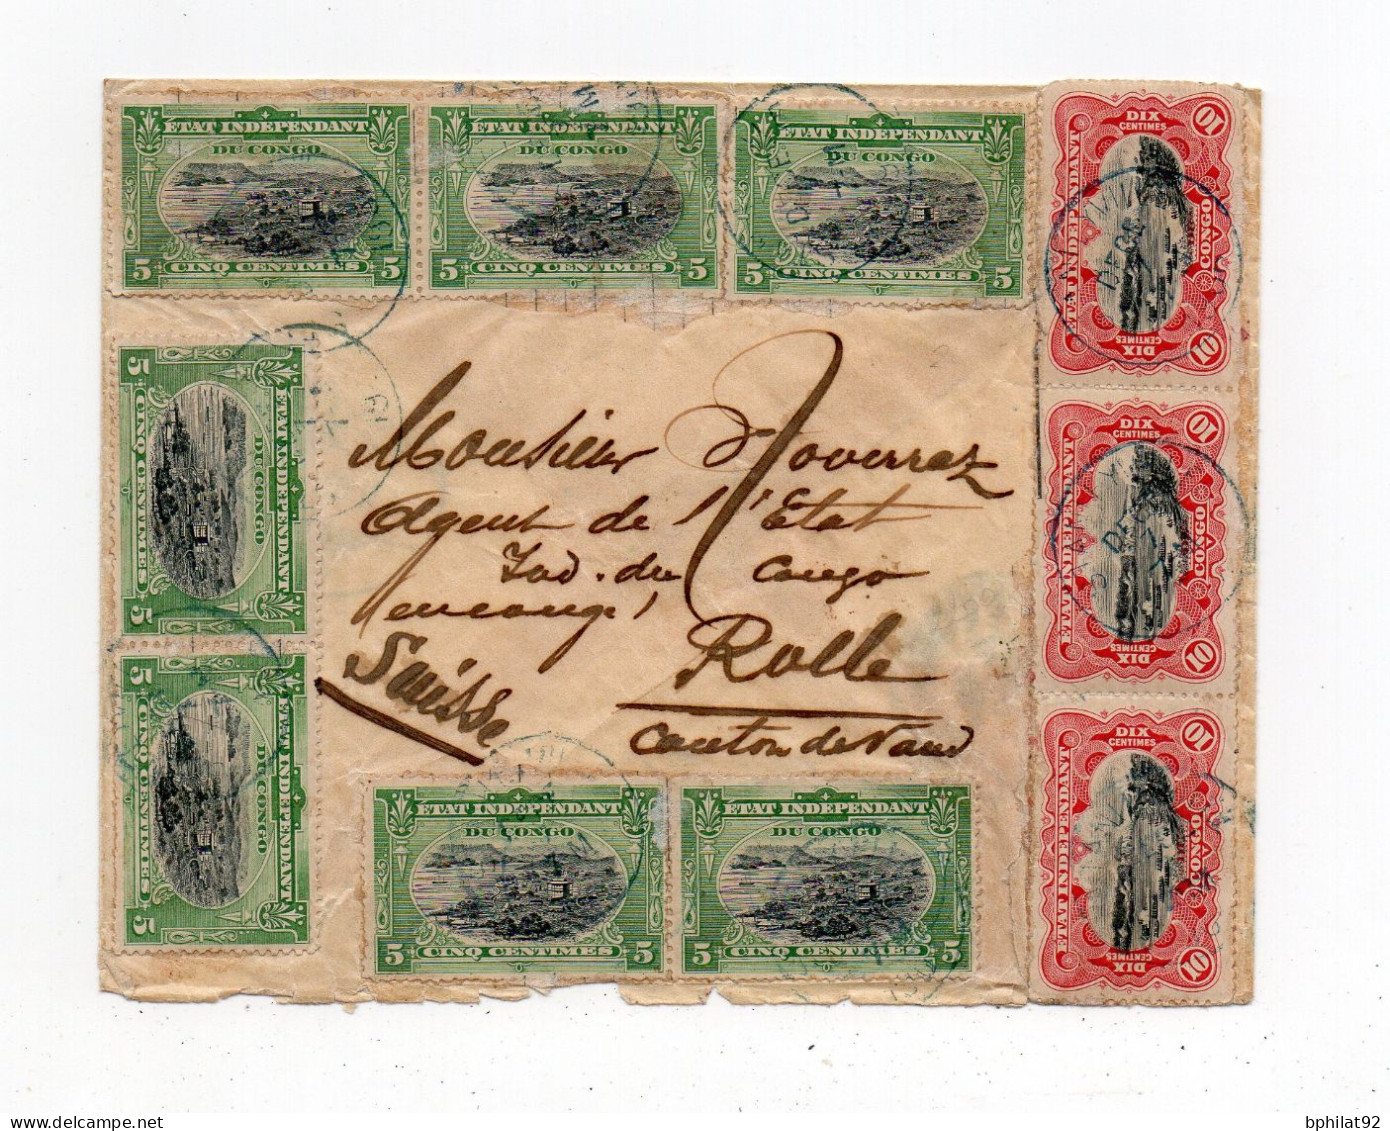 ETAT INDEPENDANT
DU CONGO
5 CINQ CENTIMES 5
ETAT INDEPENDANT
DU CONGO
5 CINQ CENTIMES 5
ETAT INDEPENDANT
DU CONGO
5 CINQ CENTIMES 5
10 DIX CENTIMES 10
ETAT INDEPENDANT
CONGO
DIX CENTIMES
10 DIX CENTIMES 10
ETAT INDEPENDANT
CONGO
DIX CENTIMES
10 DIX CENTIMES 10
ETAT INDEPENDANT
CONGO
DIX CENTIMES
ETAT INDEPENDANT
DU CONGO
5 CINQ CENTIMES 5
ETAT INDEPENDANT
DU CONGO
5 CINQ CENTIMES 5
Monsieur Noverraz
Agent de l'Etat
Ind. du Congo
en congé,
Rolle
Suisse
Canton de Vaud
ETAT INDEPENDANT
DU CONGO
5 CINQ CENTIMES 5
ETAT INDEPENDANT
DU CONGO
5 CINQ CENTIMES 5
delcampe.net
bphilat92